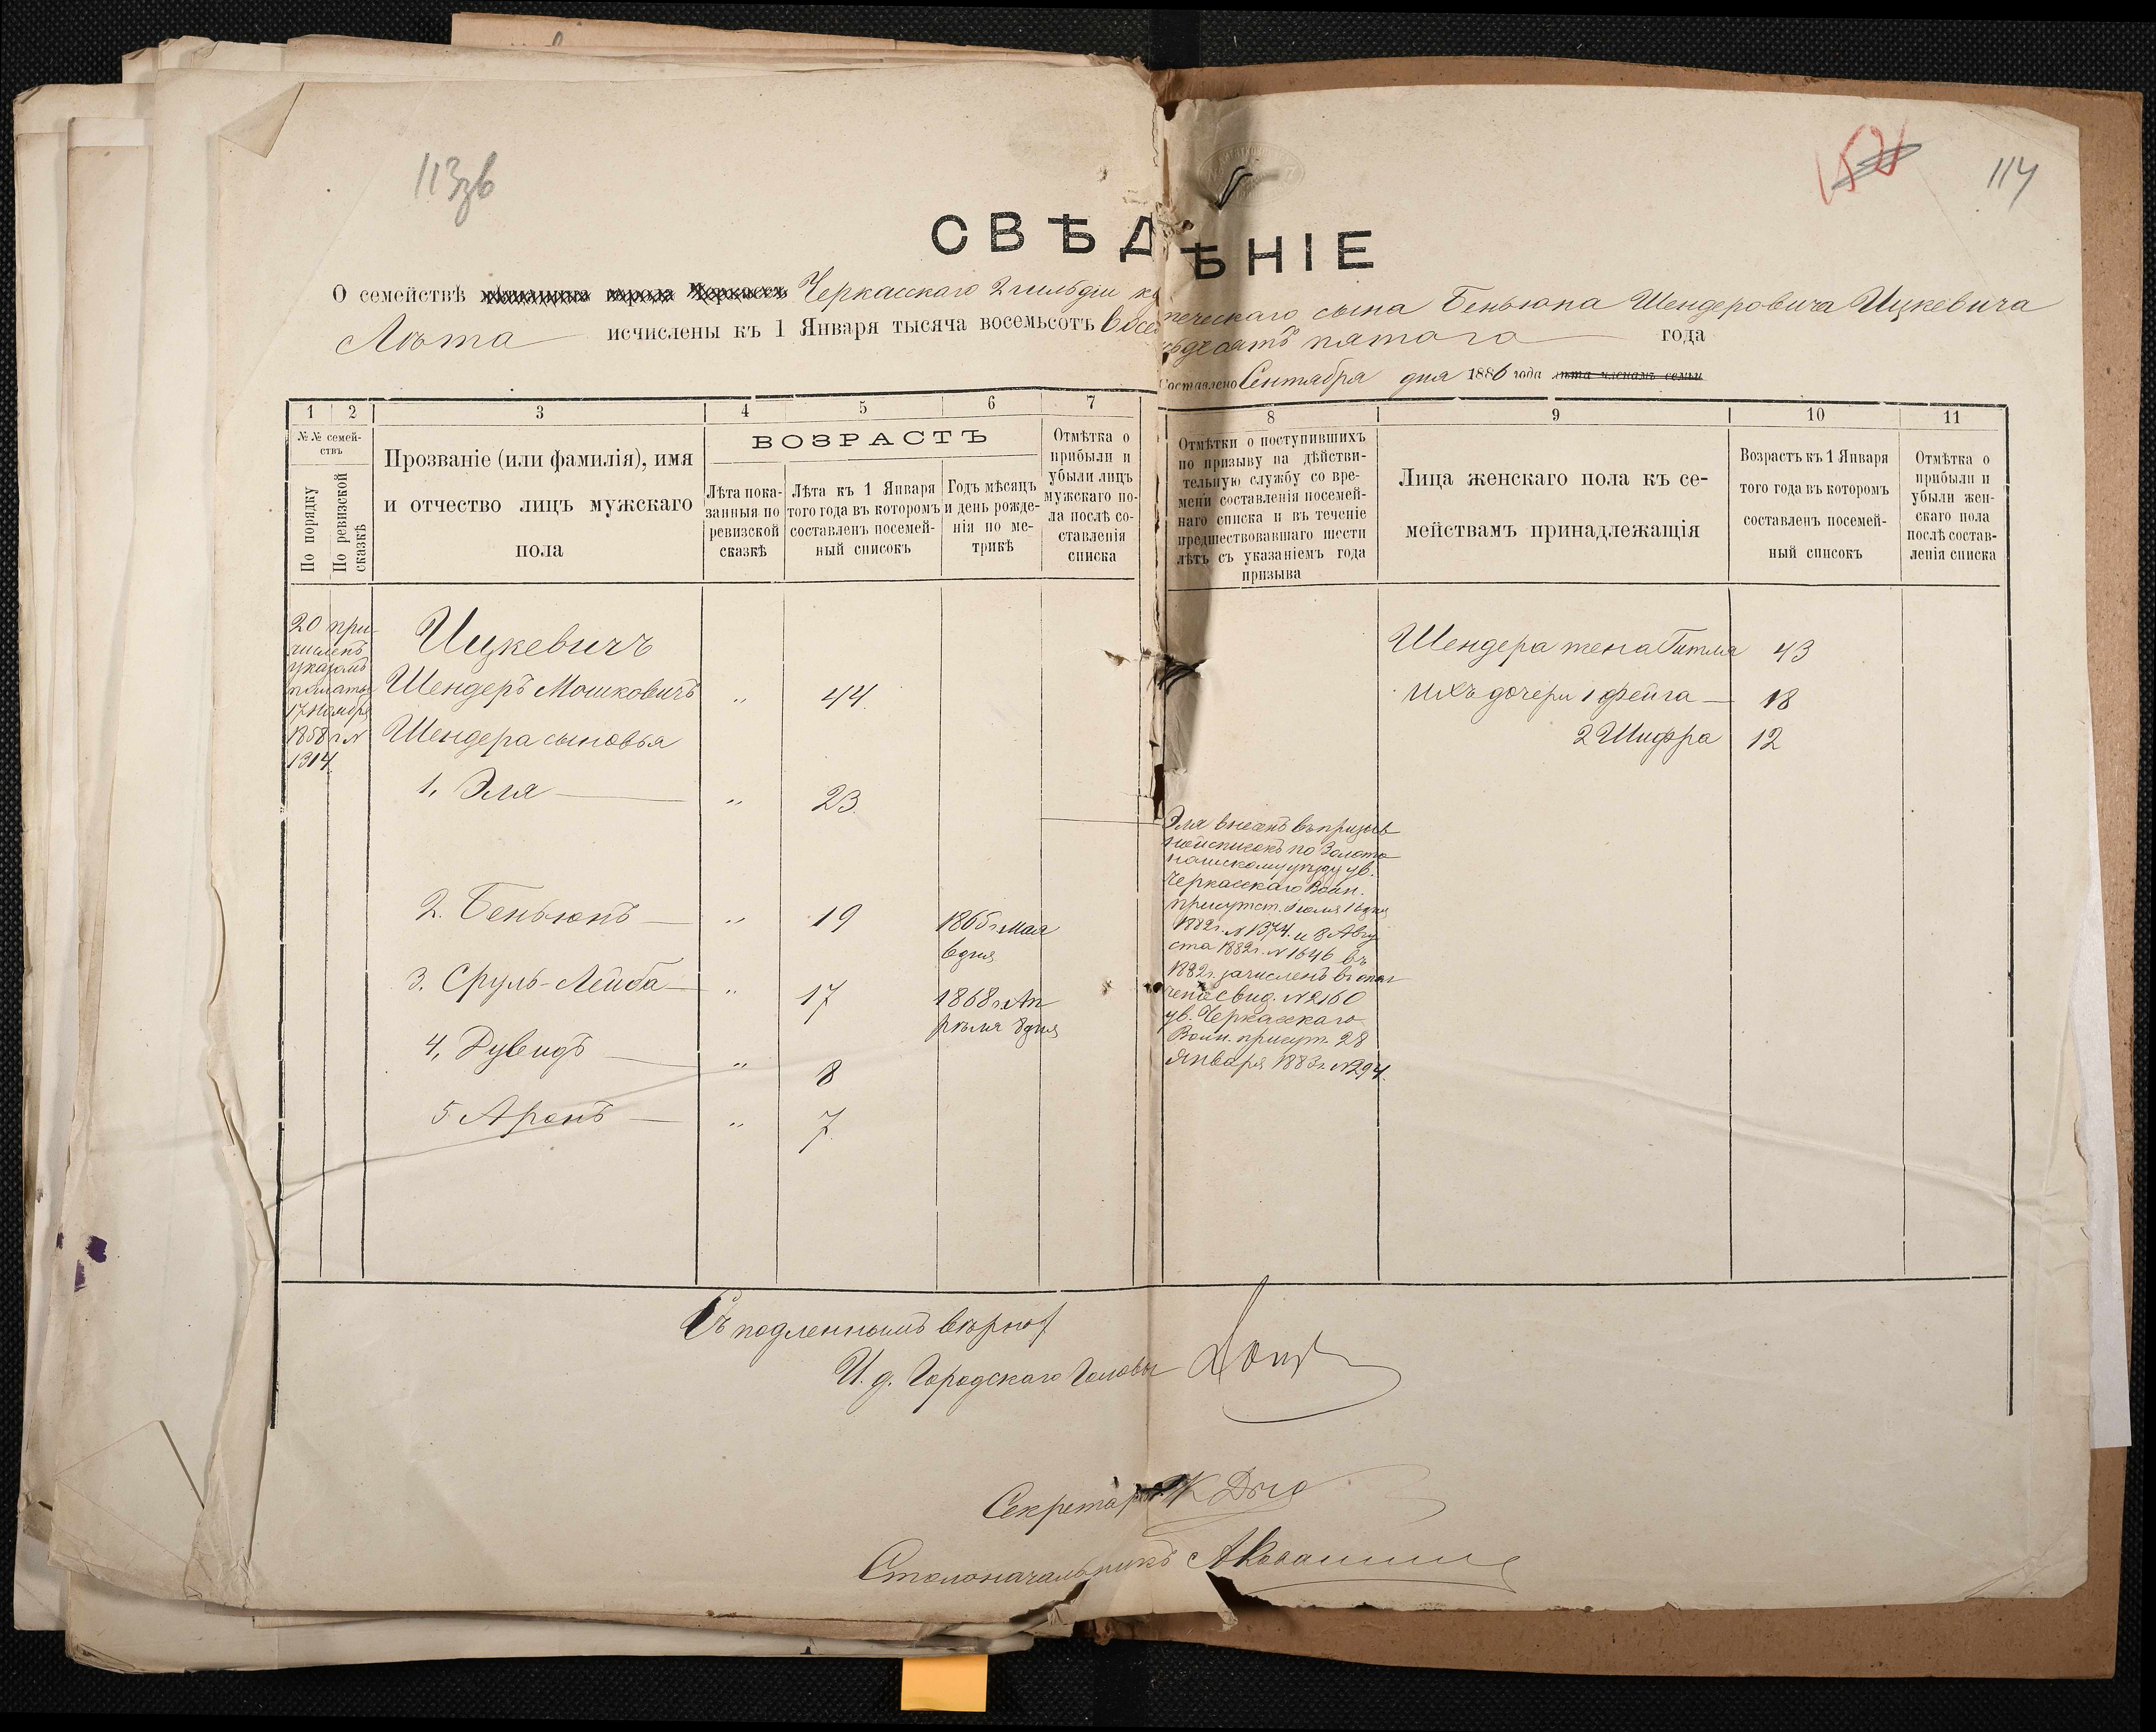 113зв
114
СВѢДѢНІЕ
О семействѣ мѣщанина города Черкассъ Черкасскаго 2 гильдіи купеческаго сына Беньюна Шендеровича Ицкевича
Лѣта исчислены къ 1 Января тысяча восемьсотъ восемьдесятъ пятаго года
Составлено Сентября дня 1886 года лѣта членамъ семьи
1 2 3 4 5 6 7 8 9 10 11
№№ семей-
ствъ
По порядку
По ревизской
сказкѣ
Прозваніе (или фамилія), имя
и отчество лицъ мужскаго
пола
ВОЗРАСТЪ
Лѣта пока-
занныя по
ревизской
сказкѣ
Лѣта къ 1 Января
того года въ которомъ
составленъ посемей-
ный списокъ
Годъ мѣсяцъ
и день рожде-
нія по ме-
трикѣ
Отмѣтка о
прибыли и
убыли лицъ
мужскаго по-
ла послѣ со-
ставленія
списка
Отмѣтки о поступившихъ
по призыву на дѣйстви-
тельную службу со вре-
мени составленія посемей-
наго списка и въ теченіе
предшествовавшаго шести
лѣтъ съ указаніемъ года
призыва
Лица женскаго пола къ се-
мействамъ принадлежащія
Возрастъ къ 1 Января
того года въ которомъ
составленъ посемей-
ный списокъ
Отмѣтка о
прибыли и
убыли жен-
скаго пола
послѣ состав-
ленія списка
20 при-
численъ
указомъ
палаты
17 ноября
1858 г. №
1314
Ицкевичъ
Шендеръ Мошковичъ „ 44
Шендера сыновья
1. Эля — „ 23
2. Беньюнъ — „ 19 1865 г. мая
6 дня
3. Сруль-Лейба — „ 17 1868 г. Ап
рѣля 8 дня
4, Дувидъ — „ 8
5 Аронъ — „ 7
Эля внесенъ въ призыв
ной списокъ по Золото
ношскому уѣзду ув.
Черкасскаго Воин.
присутст. Іюля 16 дня
1882 г. № 1374. и 8 Авгу
ста 1882 г. № 1646 въ
1882 г. зачисленъ в опол
ченіе свид. № 2160
ув. Черкасскаго
Воин. присут. 28
Января 1883 г. № 294.
Шендера жена Гитля 43
ихъ дочери 1 Фейга — 18
2 Шифра 12
Съ подленнымъ вѣрно
И. д. Городскаго Головы
Секретарь
Столоначальникъ